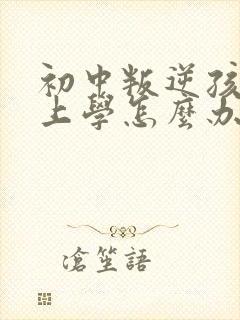 初中叛逆孩
上學怎麼办
滄笙語